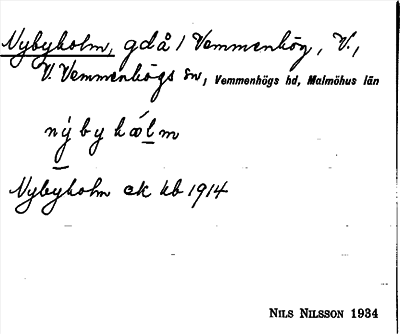 Nybyholm, gd å 1 Vemmenhög, V.,
V. Vemmenhögs sn, Vemmenhögs hd, Malmöhus län
nýbyhǽlm
Nybyholm ek kb 1914
NILS NILSSON 1934